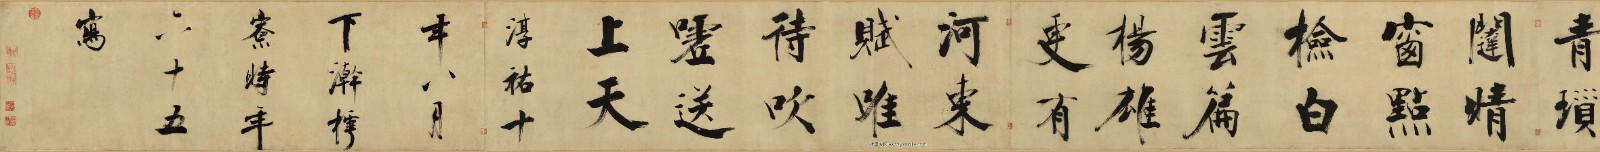 青瑣
闥晴
窗點
檢白
雲篇
楊雄
更有
河東
賦唯
待吹
噓送
上天
淳祐十
年八月
下澣樗
寮時年
六十五
寫